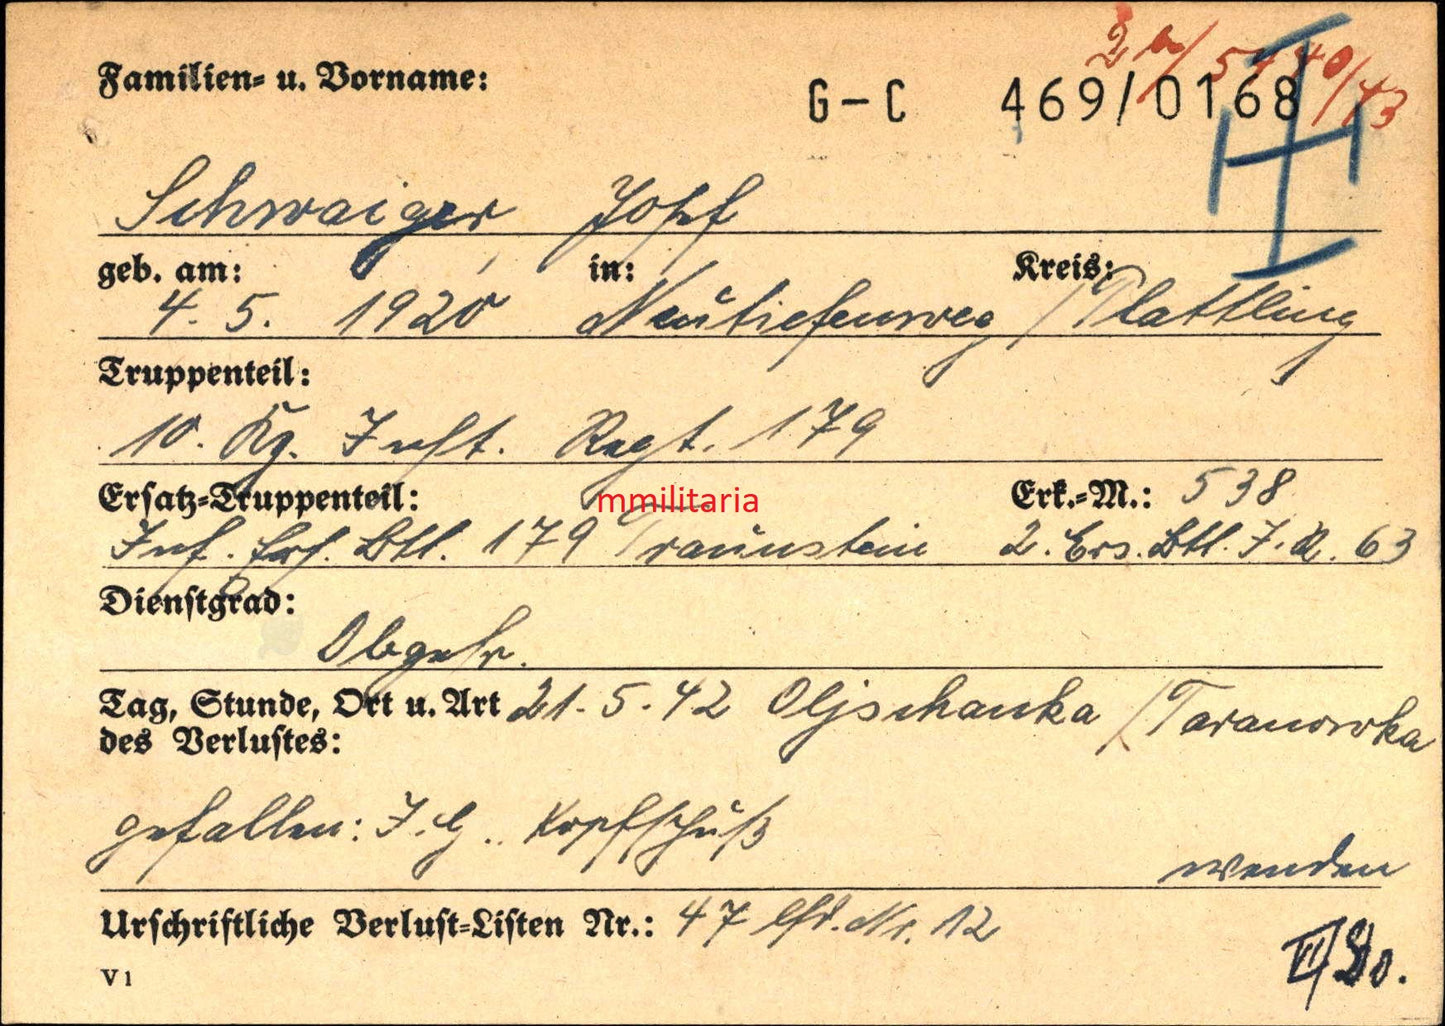 Familien- u. Vorname:
G-C 469/0168
Schwaiger Josef
geb. am: in: Kreis:
4. 5. 1920 Neutiefenweg / Plattling
Truppenteil:
10. Kp. Inft. Regt. 179
Ersatz-Truppenteil: Erk.-M.: 538
mmilitaria
Inf. Ers. Btl. 179 Traunstein 2. Ers. Btl. I. R. 63
Dienstgrad:
Obgefr.
Tag, Stunde, Ort u. Art 21. 5. 42 Oljschanka / Taranowka
des Verlustes:
gefallen: I. G. Kopfschuß
wenden
Urschriftliche Verlust-Listen Nr.: 47 lfd. Nr. 12
V 1